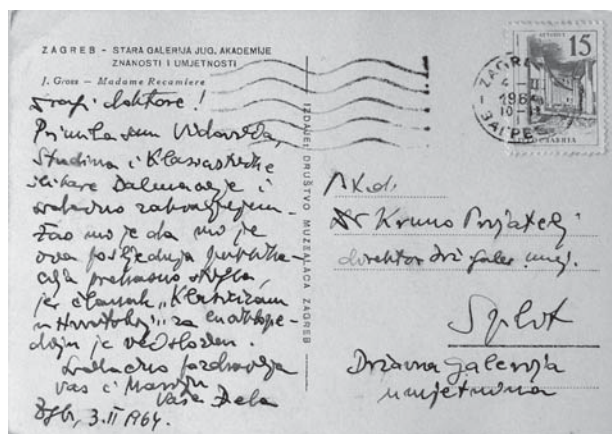 ZAGREB - STARA GALERIJA JUG. AKADEMIJE
ZNANOSTI I UMJETNOSTI
J. Gross — Madame Recamiere
Dragi doktore!
Primila sam Vidovića,
Studina i Klasicističke
slikare Dalmacije i
srdačno zahvaljujem.
Žao mi je da mi je
ova posljednja publika-
cija prekasno stigla,
jer članak „Klasicizam
u Hrvatskoj" za enciklope-
diju je već složen.
Srdačno pozdravlja
vas i
Vaša Zela
Zgb, 3.II 1964.
IZDANJE: DRUŠTVO MUZEALACA ZAGREB
15
ZAGREB
1964
10-11
ЗАГРЕБ
JUGOSLAVIJA
Dr Kruno Prijatelj
direktor
Split
Državna galerija
umjetnina